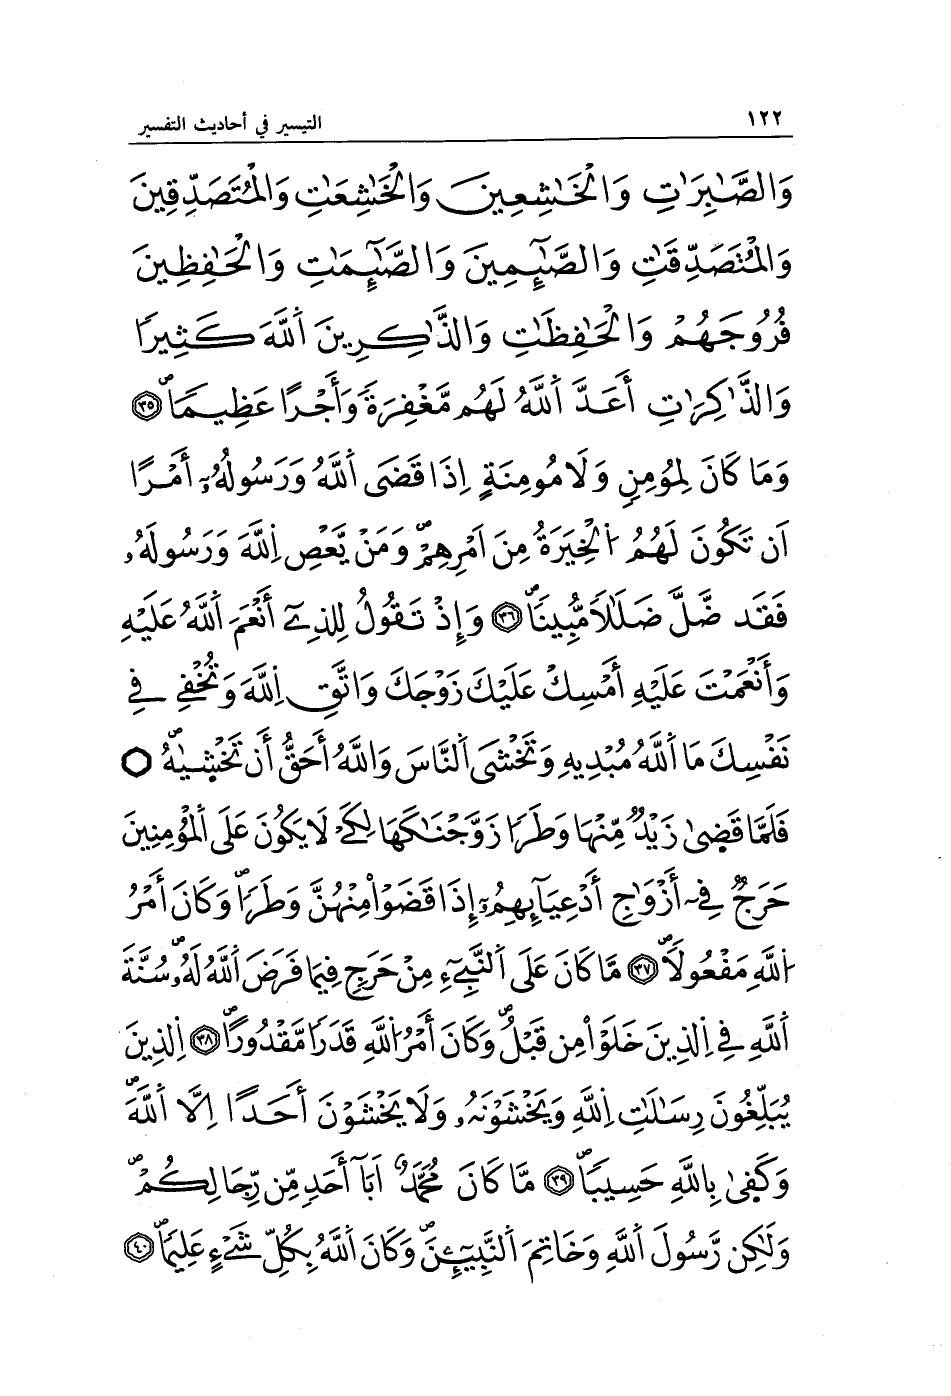 ١٢٢ التيسير في أحاديث التفسير
وَالصَّٰبِرَٰتِ وَالْخَٰشِعِينَ وَالْخَٰشِعَٰتِ وَالْمُتَصَدِّقِينَ
وَالْمُتَصَدِّقَٰتِ وَالصَّٰٓئِمِينَ وَالصَّٰٓئِمَٰتِ وَالْحَٰفِظِينَ
فُرُوجَهُمْ وَالْحَٰفِظَٰتِ وَالذَّٰكِرِينَ اَللَّهَ كَثِيرًا
وَالذَّٰكِرَٰتِ أَعَدَّ اَللَّهُ لَهُم مَّغْفِرَةً وَأَجْرًا عَظِيمًا ۝٣٥
وَمَا كَانَ لِمُؤْمِنٍ وَلَا مُومِنَةٍ اِذَا قَضَى اَللَّهُ وَرَسُولُهُۥٓ أَمْرًا
اَن تَكُونَ لَهُمُ اُلْخِيَرَةُ مِنَ اَمْرِهِمْ وَمَنْ يَّعْصِ اِللَّهَ وَرَسُولَهُۥ
فَقَد ضَّلَّ ضَلَٰلًا مُّبِينًا ۝٣٦ وَإِذْ تَقُولُ لِلذِےٓ أَنْعَمَ اَللَّهُ عَلَيْهِ
وَأَنْعَمْتَ عَلَيْهِ أَمْسِكْ عَلَيْكَ زَوْجَكَ وَاتَّقِ اِللَّهَ وَتُخْفِے فِے
نَفْسِكَ مَا اَللَّهُ مُبْدِيهِ وَتَخْشَى اَلنَّاسَ وَاللَّهُ أَحَقُّ أَن تَخْشٜىٰهُ
فَلَمَّا قَضٜىٰ زَيْدٌ مِّنْهَا وَطَرًا زَوَّجْنَٰكَهَا لِكَےْ لَا يَكُونَ عَلَى اَلْمُؤْمِنِينَ
حَرَجٌ فِےٓ أَزْوَٰجِ أَدْعِيَآئِهِمُۥٓ إِذَا قَضَوْا مِنْهُنَّ وَطَرًا وَكَانَ أَمْرُ
اُللَّهِ مَفْعُولًا ۝٣٧ مَّا كَانَ عَلَى اَلنَّبِےٓءِ مِنْ حَرَجٍ فِيمَا فَرَضَ اَللَّهُ لَهُۥ سُنَّةَ
اَللَّهِ فِے اِلذِينَ خَلَوْا مِن قَبْلُ وَكَانَ أَمْرُ اُللَّهِ قَدَرًا مَّقْدُورًا ۝٣٨ اِلذِينَ
يُبَلِّغُونَ رِسَٰلَٰتِ اِللَّهِ وَيَخْشَوْنَهُۥ وَلَا يَخْشَوْنَ أَحَدًا اِلَّا اَللَّهَ
وَكَفٜىٰ بِاللَّهِ حَسِيبًا ۝٣٩ مَّا كَانَ مُحَمَّدٌ اَبَآ أَحَدٍ مِّن رِّجَالِكُمْ
وَلَٰكِن رَّسُولَ اَللَّهِ وَخَاتِمَ اَلنَّبِيٓـِٕينَ وَكَانَ اَللَّهُ بِكُلِّ شَےْءٍ عَلِيمًا ۝٤٠